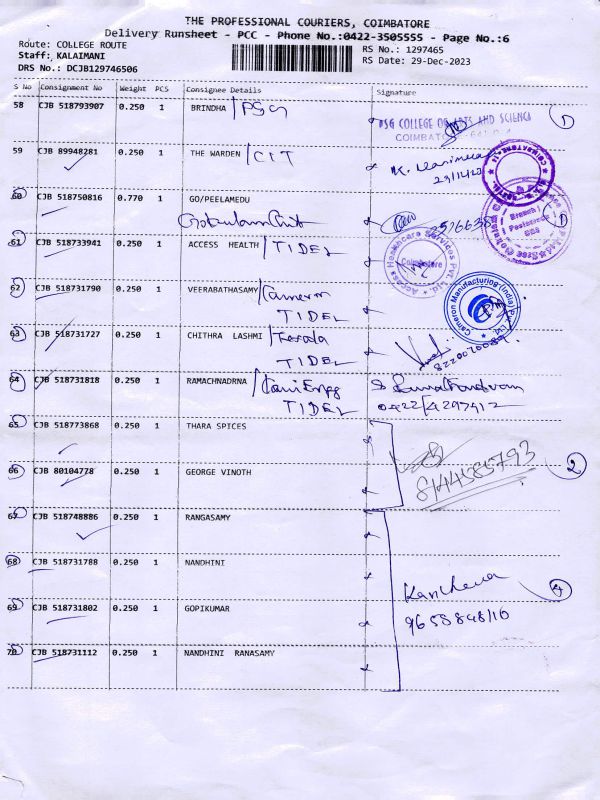 THE PROFESSIONAL COURIERS, COIMBATORE
Delivery Runsheet - PCC - Phone No.:0422-3505555 - Page No.:6
Route: COLLEGE ROUTE
RS No.: 1297465
Staff: KALAIMANI
RS Date: 29-Dec-2023
DRS No.: DCJB129746506
S No Consignment No Weight PCS Consignee Details Signature
58 CJB 518793907 0.250 1 BRINDHA /PSG
PSG COLLEGE OF ARTS AND SCIENCE
COIMATORE
1
59 CJB 89948281 0.250 1 THE WARDEN /CIT
60 CJB 518750816 0.770 1 GO/PEELAMEDU
1
61 CJB 518733941 0.250 1 ACCESS HEALTH /TIDEL
Access Healthcare Services Pvt. Ltd.
Coimbatore
62 CJB 518731790 0.250 1 VEERABATHASAMY /Cameron
TIDEL
Cameron Manufacturing (India) Pvt. Ltd.
63 CJB 518731727 0.250 1 CHITHRA LASHMI
TIDEL
64 CJB 518731818 0.250 1 RAMACHNADRNA
TIDEL 0422/4297412
65 CJB 518773868 0.250 1 THARA SPICES
66 CJB 80104778 0.250 1 GEORGE VINOTH
8144585793
2
67 CJB 518748886 0.250 1 RANGASAMY
68 CJB 518731788 0.250 1 NANDHINI
Kanchana
4
69 CJB 518731802 0.250 1 GOPIKUMAR
9658848110
70 CJB 518731112 0.250 1 NANDHINI RANASAMY